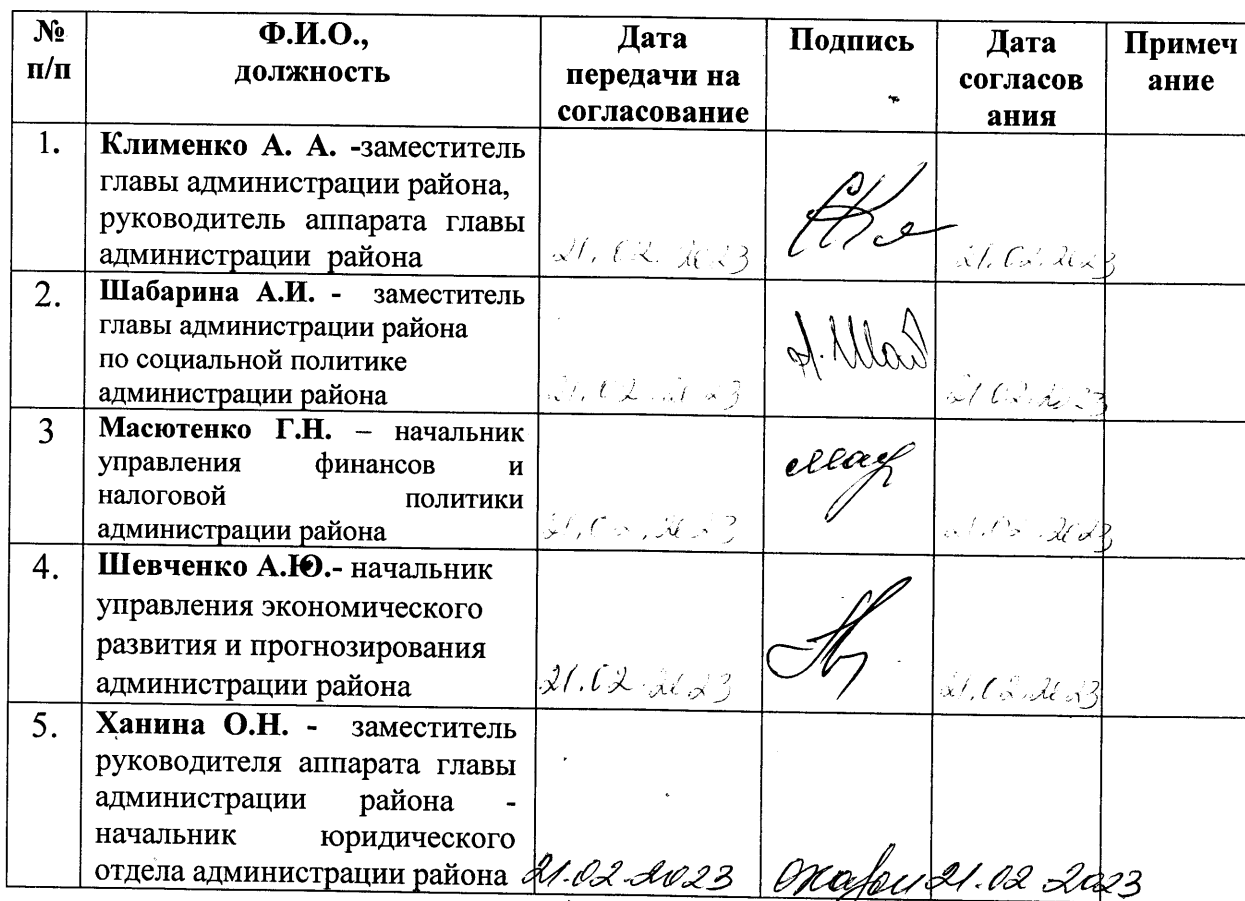 № п/п Ф.И.О., должность Дата передачи на согласование Подпись Дата согласов ания Примеч ание
1. Клименко А. А. -заместитель
главы администрации района,
руководитель аппарата главы
администрации района 21.02.2023 21.02.2023
2. Шабарина А.И. - заместитель
главы администрации района
по социальной политике
администрации района 21.02.2023 А.Шаб 21.02.2023
3 Масютенко Г.Н. – начальник
управления финансов и
налоговой политики
администрации района 21.02.2023 21.02.2023
4. Шевченко А.Ю.- начальник
управления экономического
развития и прогнозирования
администрации района 21.02.2023 21.02.2023
5. Ханина О.Н. - заместитель
руководителя аппарата главы
администрации района -
начальник юридического
отдела администрации района 21.02.2023 21.02.2023